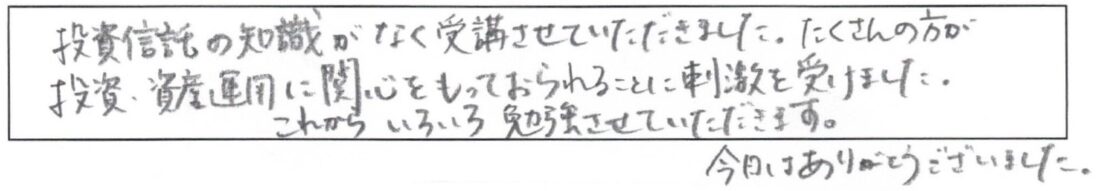 投資信託の知識がなく受講させていただきました。たくさんの方が
投資、資産運用に関心をもっておられることに刺激を受けました。
これから いろいろ 勉強させていただきます。
今日はありがとうございました。